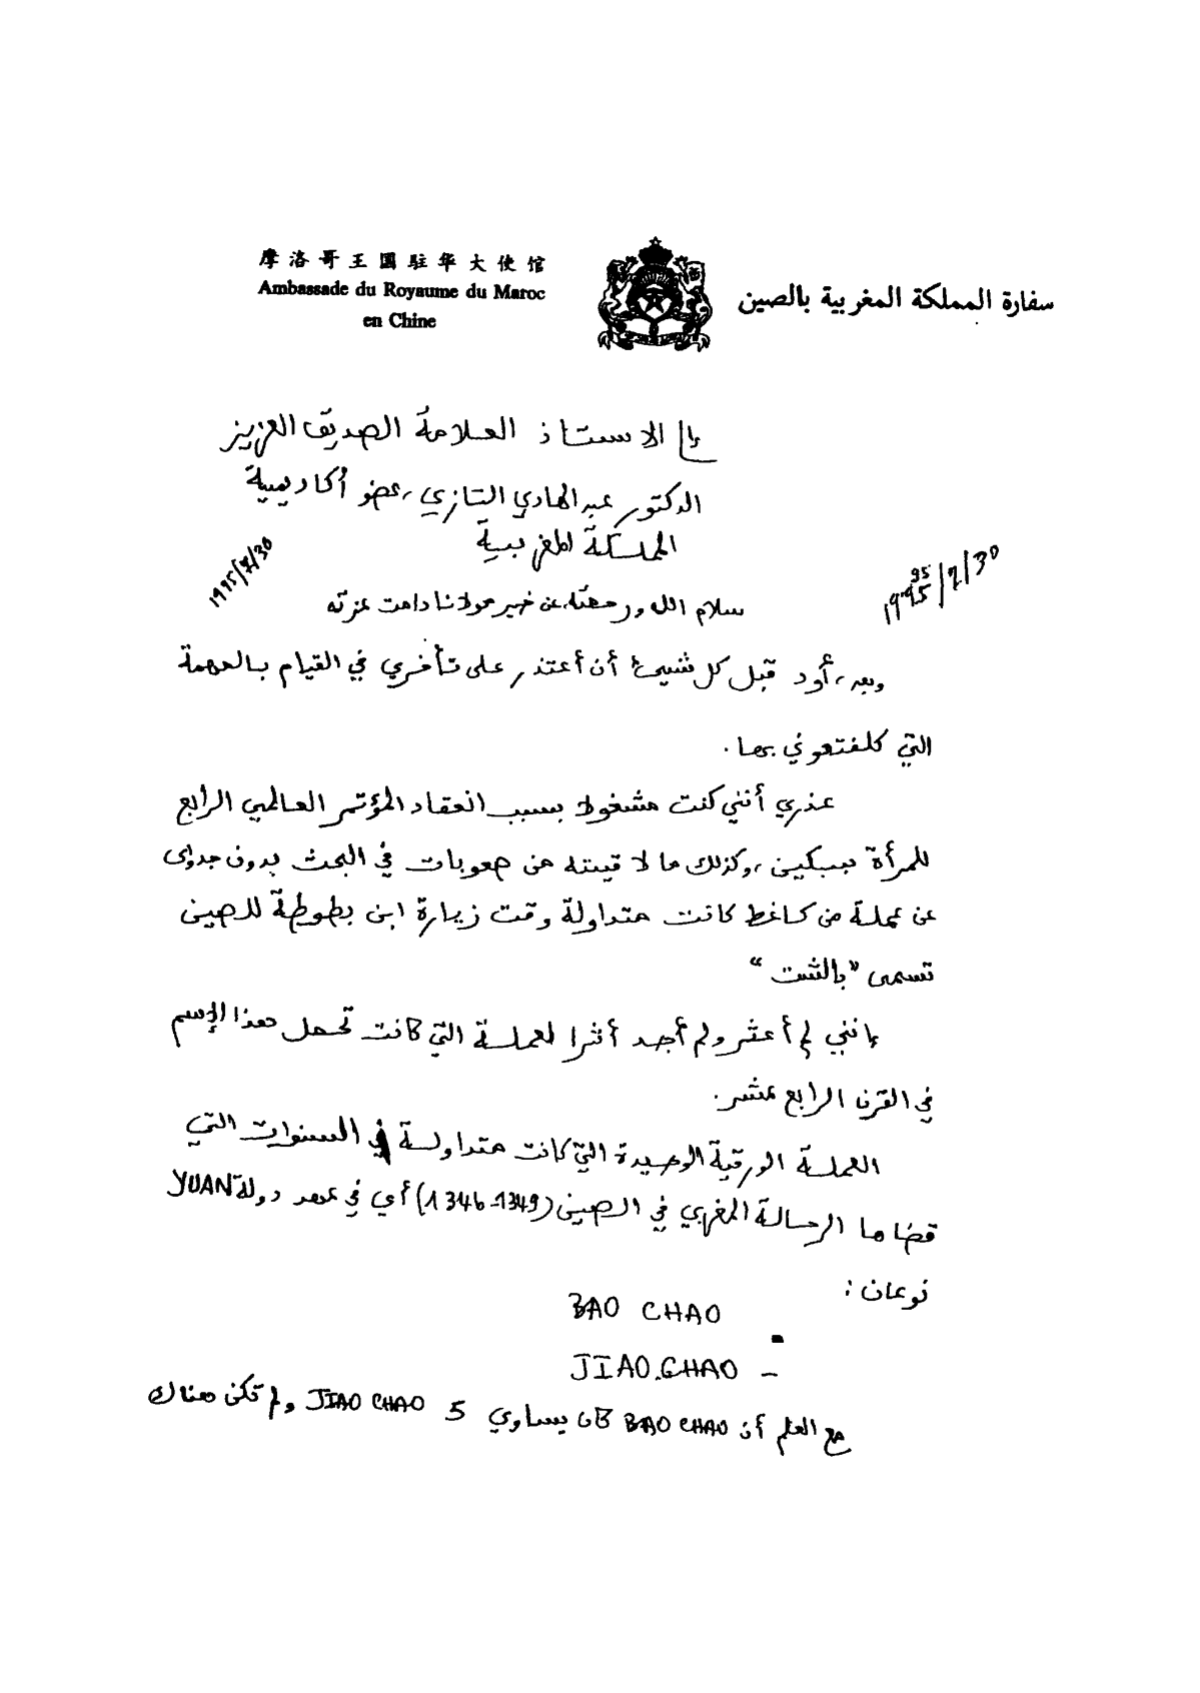 摩洛哥王國駐华大使馆
Ambassade du Royaume du Maroc
en Chine
سفارة المملكة المغربية بالصين
إلى الاستاذ العلامة الصديق العزيز
الدكتور عبد الهادي التازي، عضو أكاديمية
المملكة المغربية
1995/7/30
1995/7/30
95
سلام الله ورحمته عن خير مولانا دامت عزته
وبعد، أود قبل كل شيئ أن أعتذر على تأخري في القيام بالمهمة
التي كلفتموني بها.
عذري أنني كنت مشغولا بسبب انعقاد المؤتمر العالمي الرابع
للمرأة ببيكين، وكذلك ما لاقيته من صعوبات في البحث بدون جدوى
عن عملة من كاغط كانت متداولة وقت زيارة ابن بطوطة للصين
تسمى "بالشت"
إنني لم أعثر ولم أجد أثرا لعملة التي كانت تحمل هذا الإسم
في القرن الرابع عشر.
العملة الورقية الوحيدة التي كانت متداولة في السنوات التي
قضاها الرحالة المغربي في الصين (1346-1349) أي في عهد دولة YUAN
نوعان :
BAO CHAO
JIAO.CHAO –
مع العلم أن BAO CHAO كان يساوي 5 JIAO CHAO ولم تكن هناك